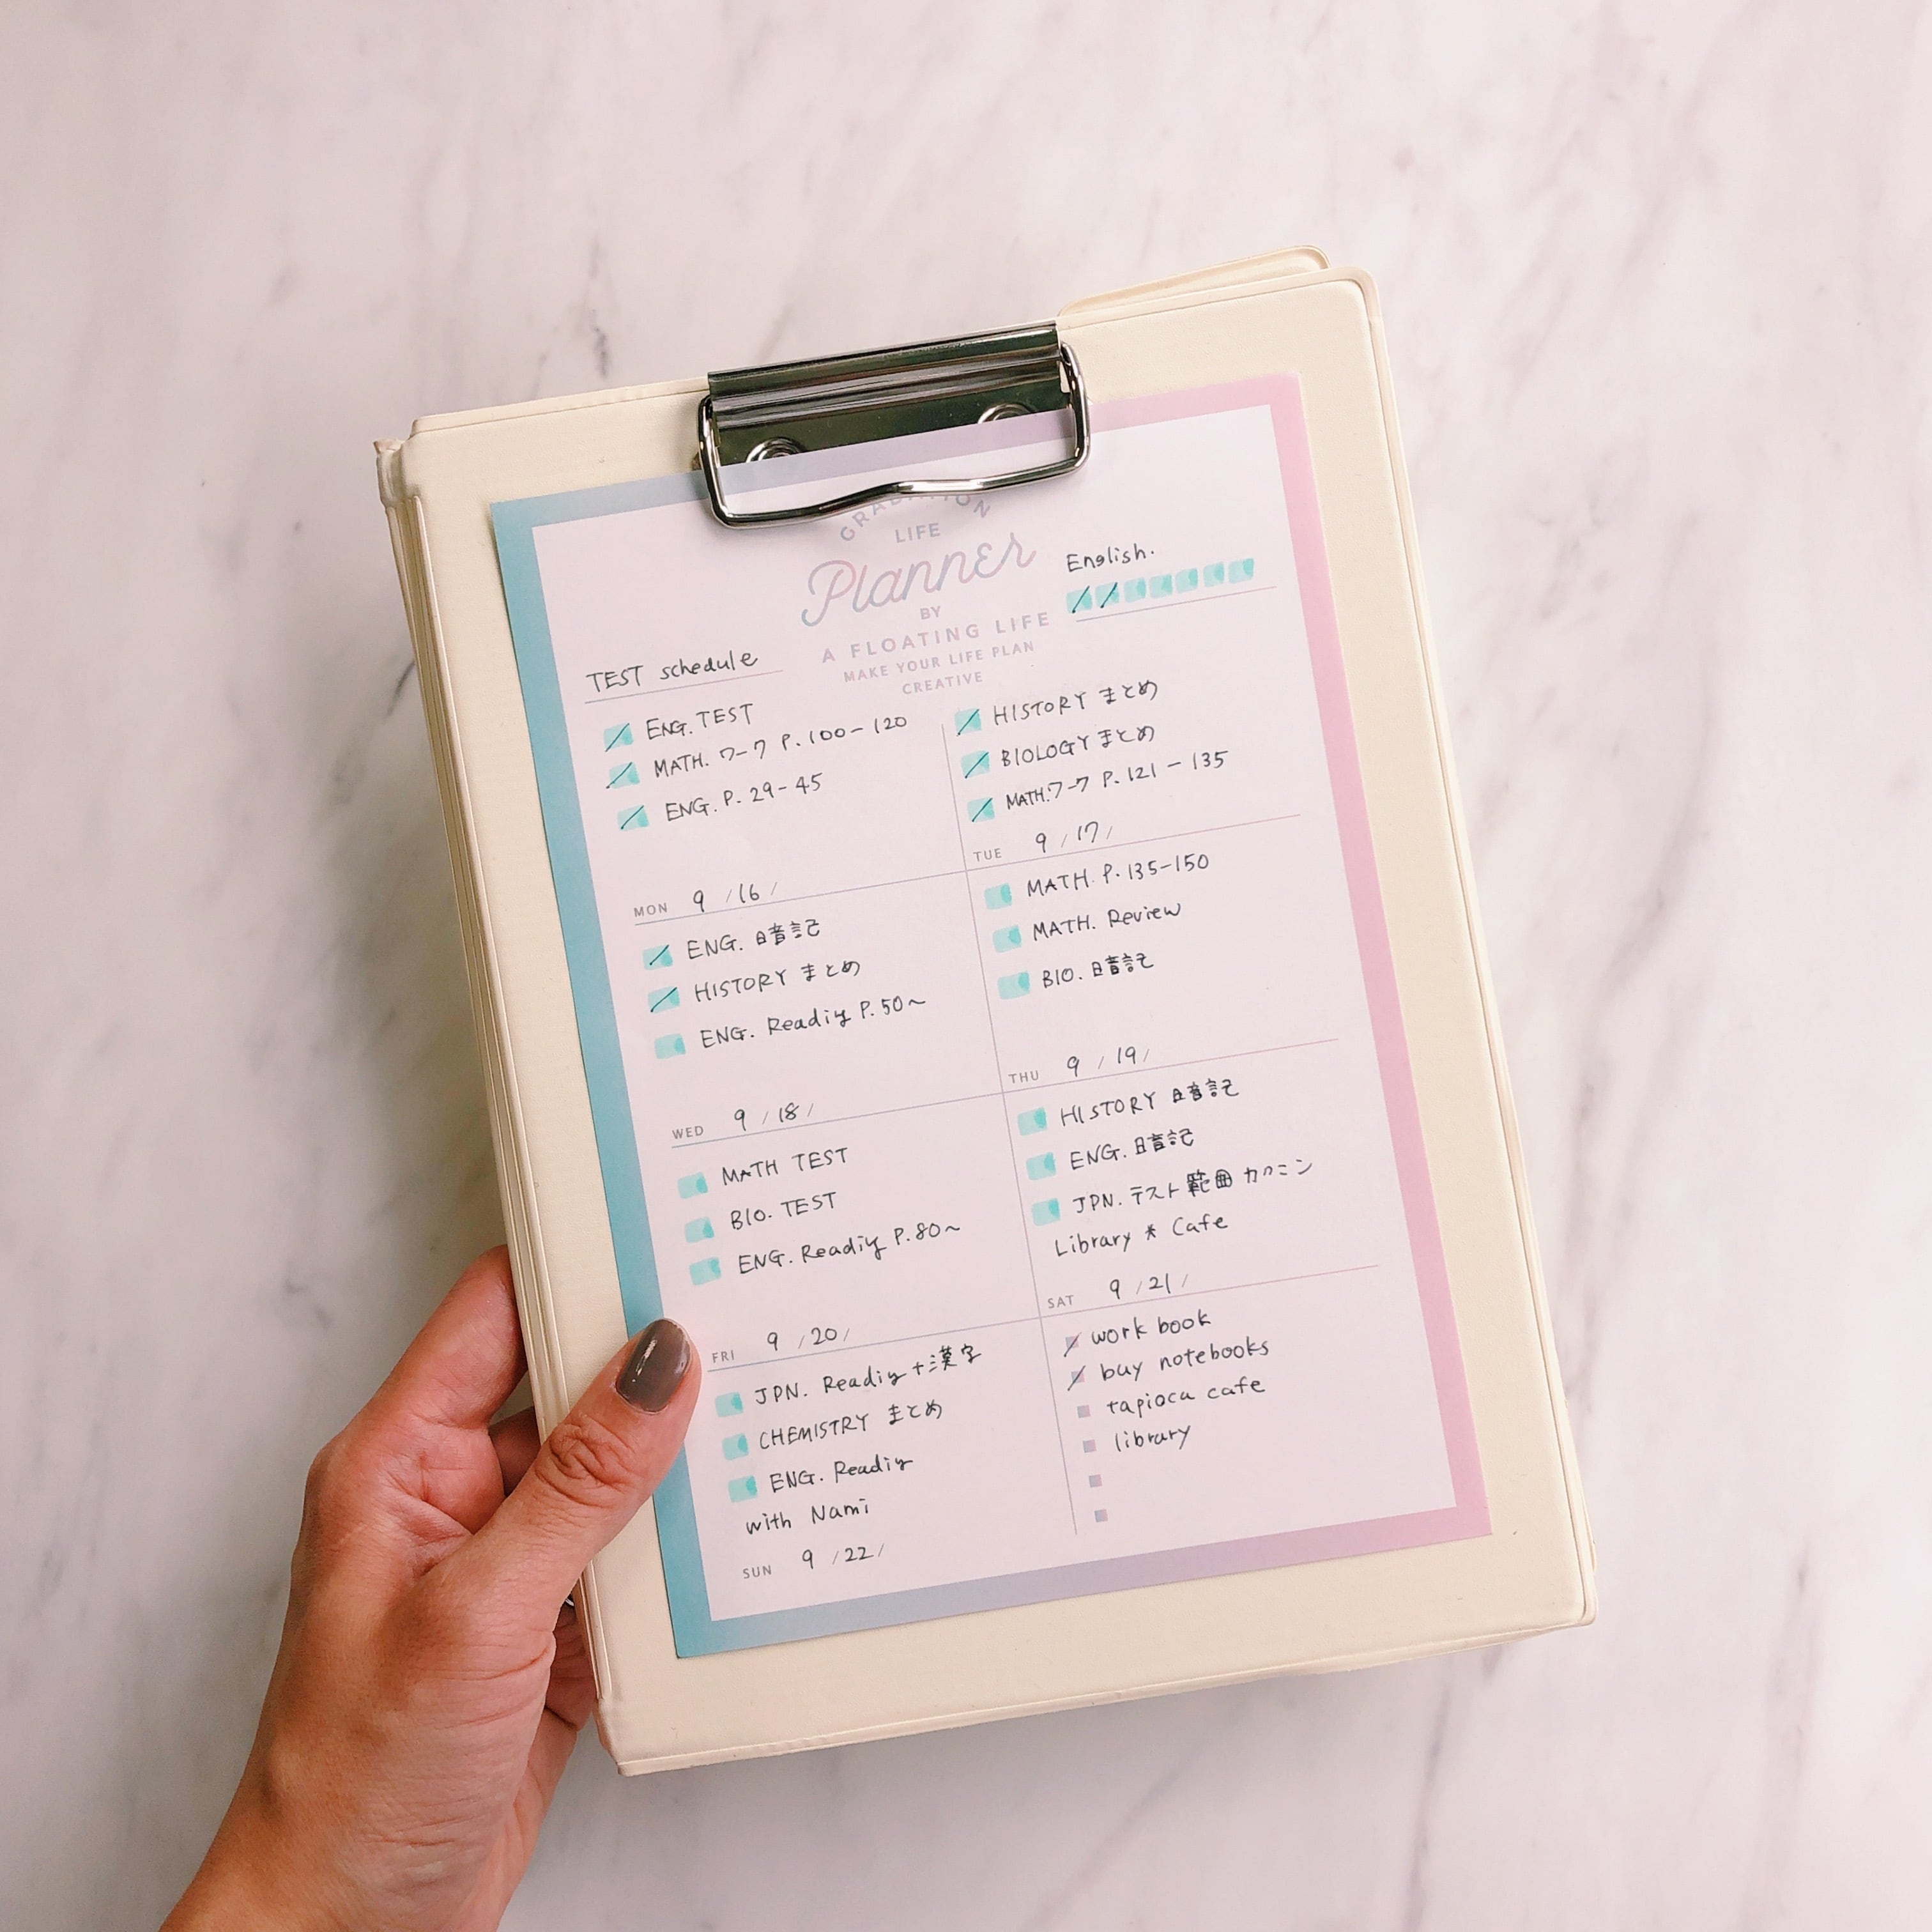 GRADATION
LIFE
Planner
BY
A FLOATING LIFE
MAKE YOUR LIFE PLAN
CREATIVE
English.
TEST schedule
ENG. TEST
MATH. ワーク P.100-120
ENG. P. 29-45
MON 9/16/
HISTORY まとめ
BIOLOGY まとめ
MATH.ワーク P.121-135
TUE 9/17/
ENG. 暗記
HISTORY まとめ
ENG. Reading P.50~
WED 9/18/
MATH. P.135-150
MATH. Review
BIO. 暗記
THU 9/19/
MATH TEST
BIO. TEST
ENG. Reading P.80~
FRI 9/20/
HISTORY 暗記
ENG. 暗記
JPN. テスト範囲カクニン
Library * Cafe
SAT 9/21/
JPN. Reading+漢字
CHEMISTRY まとめ
ENG. Reading
with Nami
SUN 9/22/
work book
buy notebooks
tapioca cafe
library